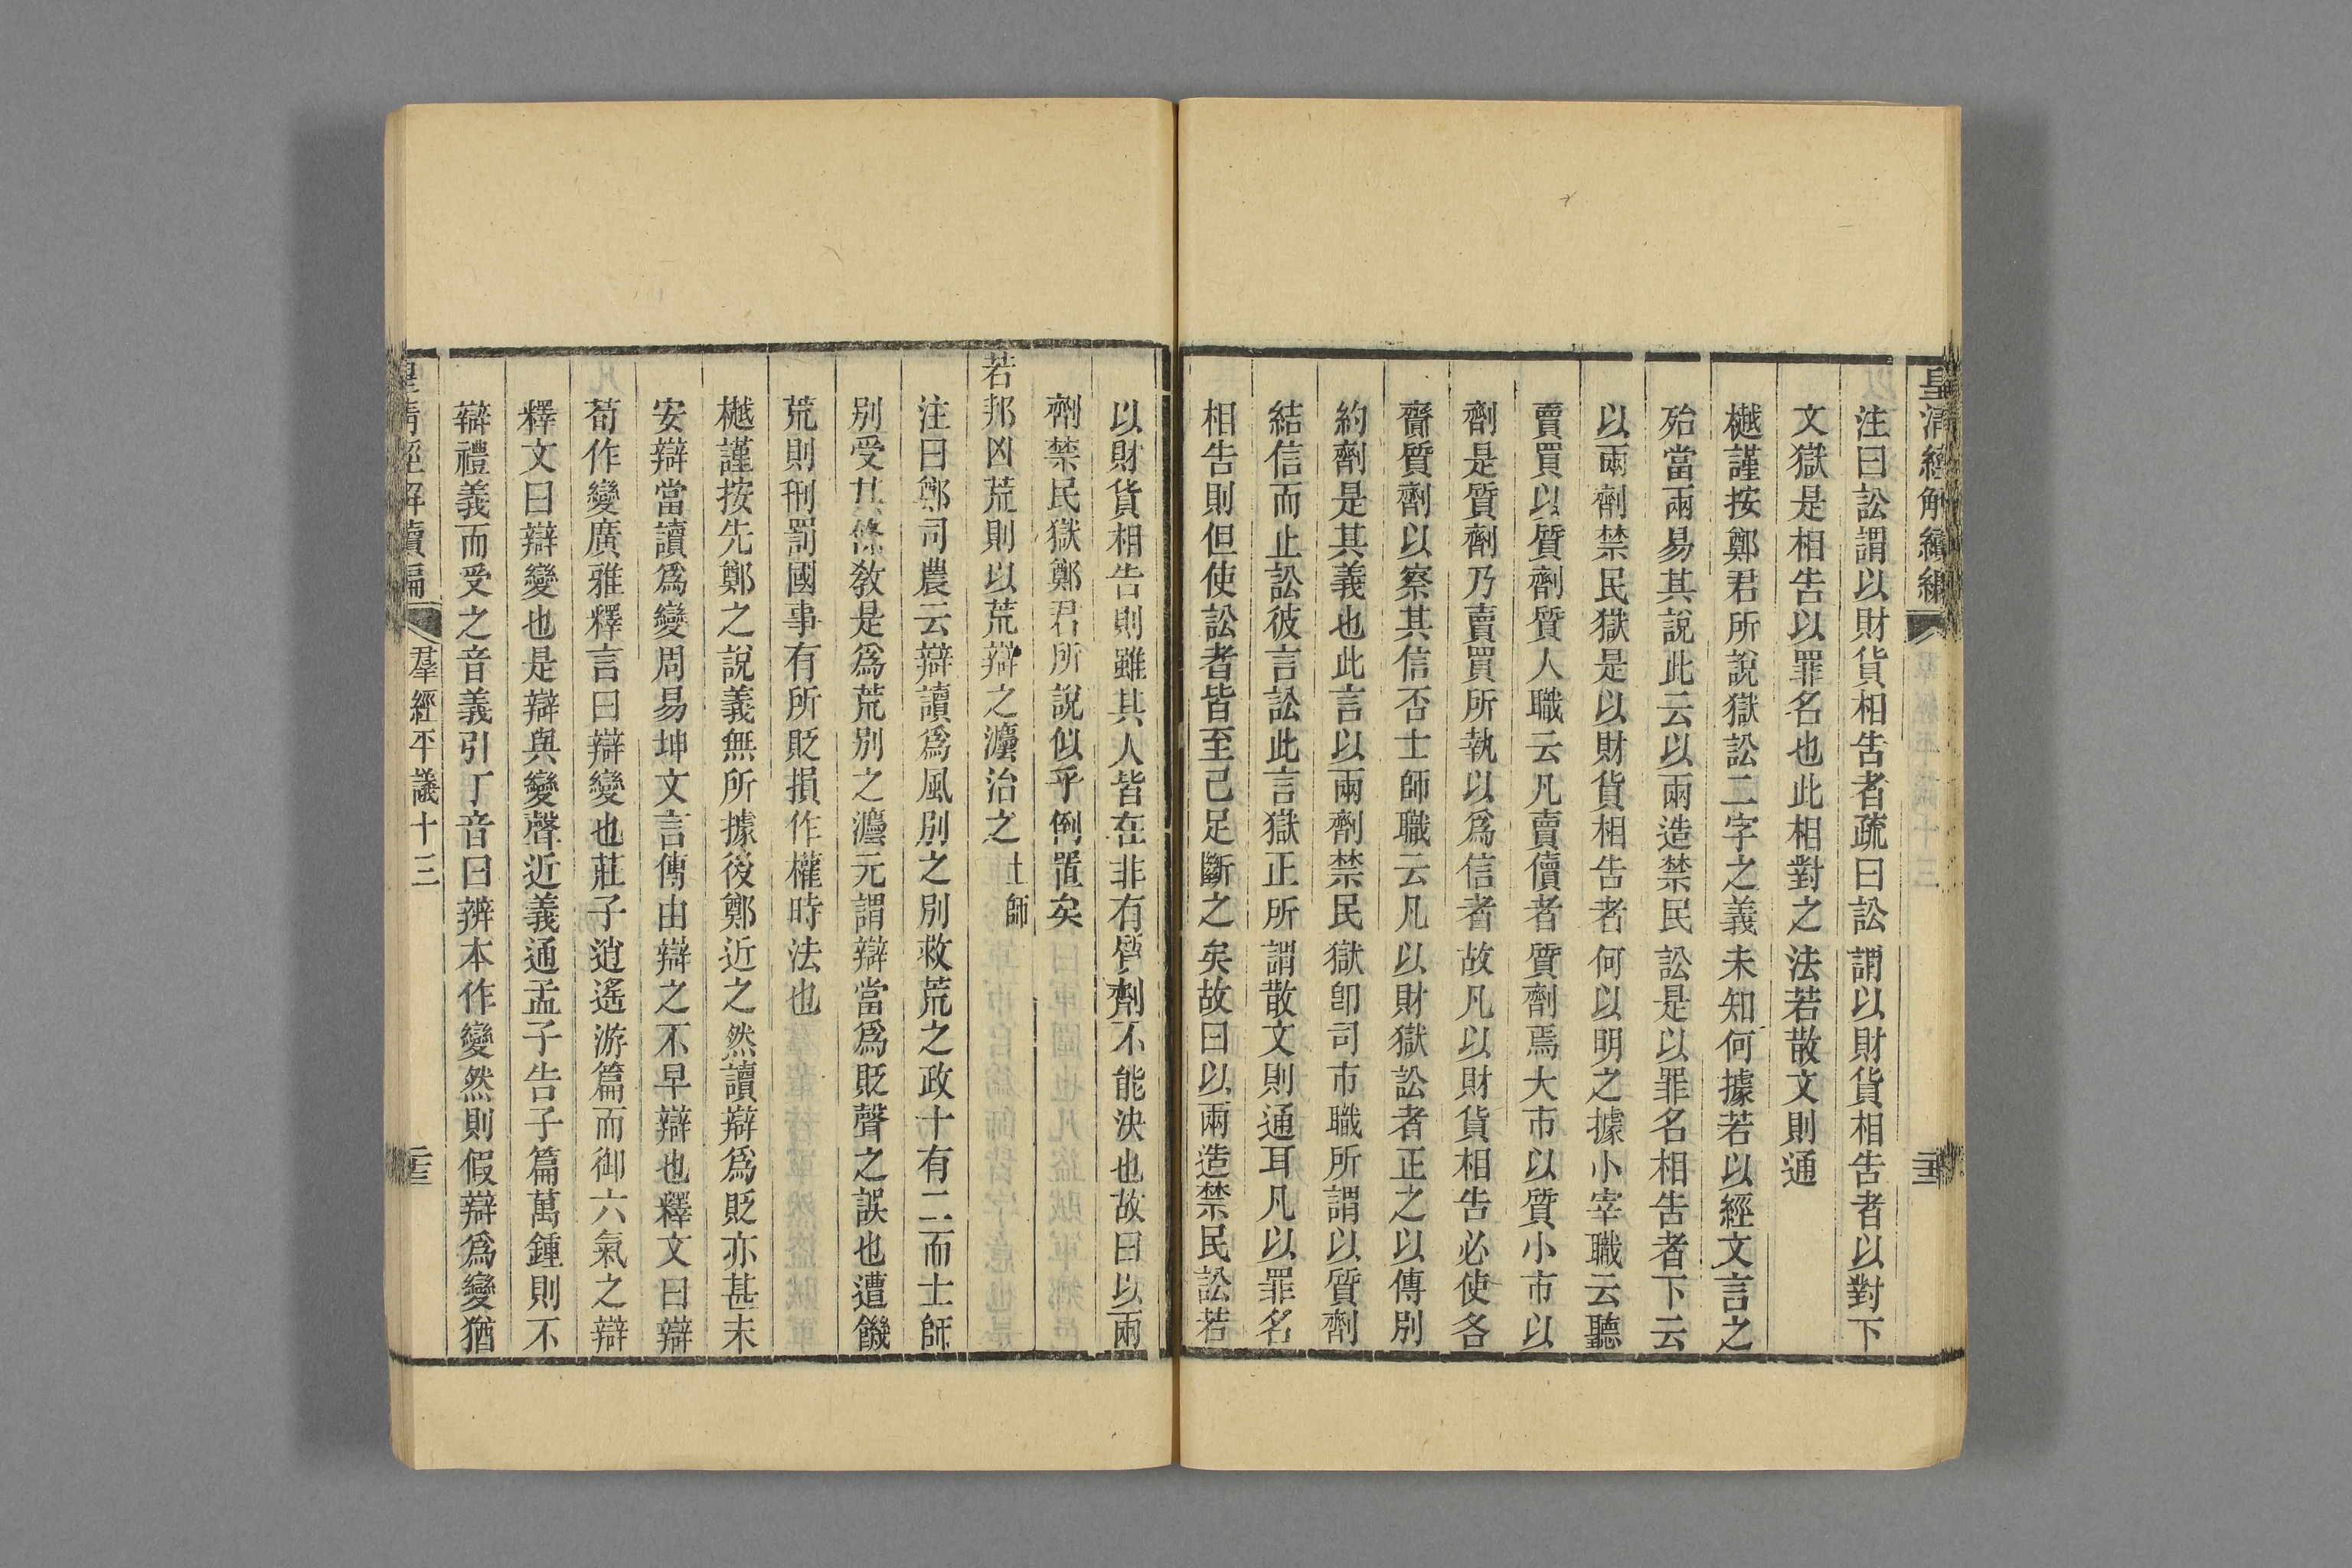 皇清經解續編
注曰訟謂以財貨相告者疏曰訟謂以財貨相告者以對下
文獄是相告以罪名也此相對之法若散文則通
樾謹按鄭君所說獄訟二字之義未知何據若以經文言之
殆當兩易其說此云以兩造禁民訟是以罪名相告者下云
以兩劑禁民獄是以財貨相告者何以明之據小宰職云聽
賣買以質劑質人職云凡賣儥者質劑焉大市以質小市以
劑是質劑乃賣買所執以爲信者故凡以財貨相告必使各
齎質劑以察其信否士師職云凡以財獄訟者正之以傳別
約劑是其義也此言以兩劑禁民獄卽司市職所謂以質劑
結信而止訟彼言訟此言獄正所謂散文則通耳凡以罪名
相告則但使訟者皆至己足斷之矣故曰以兩造禁民訟若
以財貨相告則雖其人皆在非有質劑不能決也故曰以兩
劑禁民獄鄭君所說似乎倒置矣
若邦凶荒則以荒辯之灋治之士師
注曰鄭司農云辯讀爲風別之別救荒之政十有二而士師
別受其條敎是爲荒別之灋元謂辯當爲貶聲之誤也遭饑
荒則刑罰國事有所貶損作權時法也
樾謹按先鄭之說義無所據後鄭近之然讀辯爲貶亦甚未
安辯當讀爲變周易坤文言傳由辯之不早辯也釋文曰辯
荀作變廣雅釋言曰辯變也莊子逍遙游篇而御六氣之辯
釋文曰辯變也是辯與變聲近義通孟子告子篇萬鍾則不
辯禮義而受之音義引丁音曰辨本作變然則假辯爲變猶
皇淸經解續編 羣經平議十三